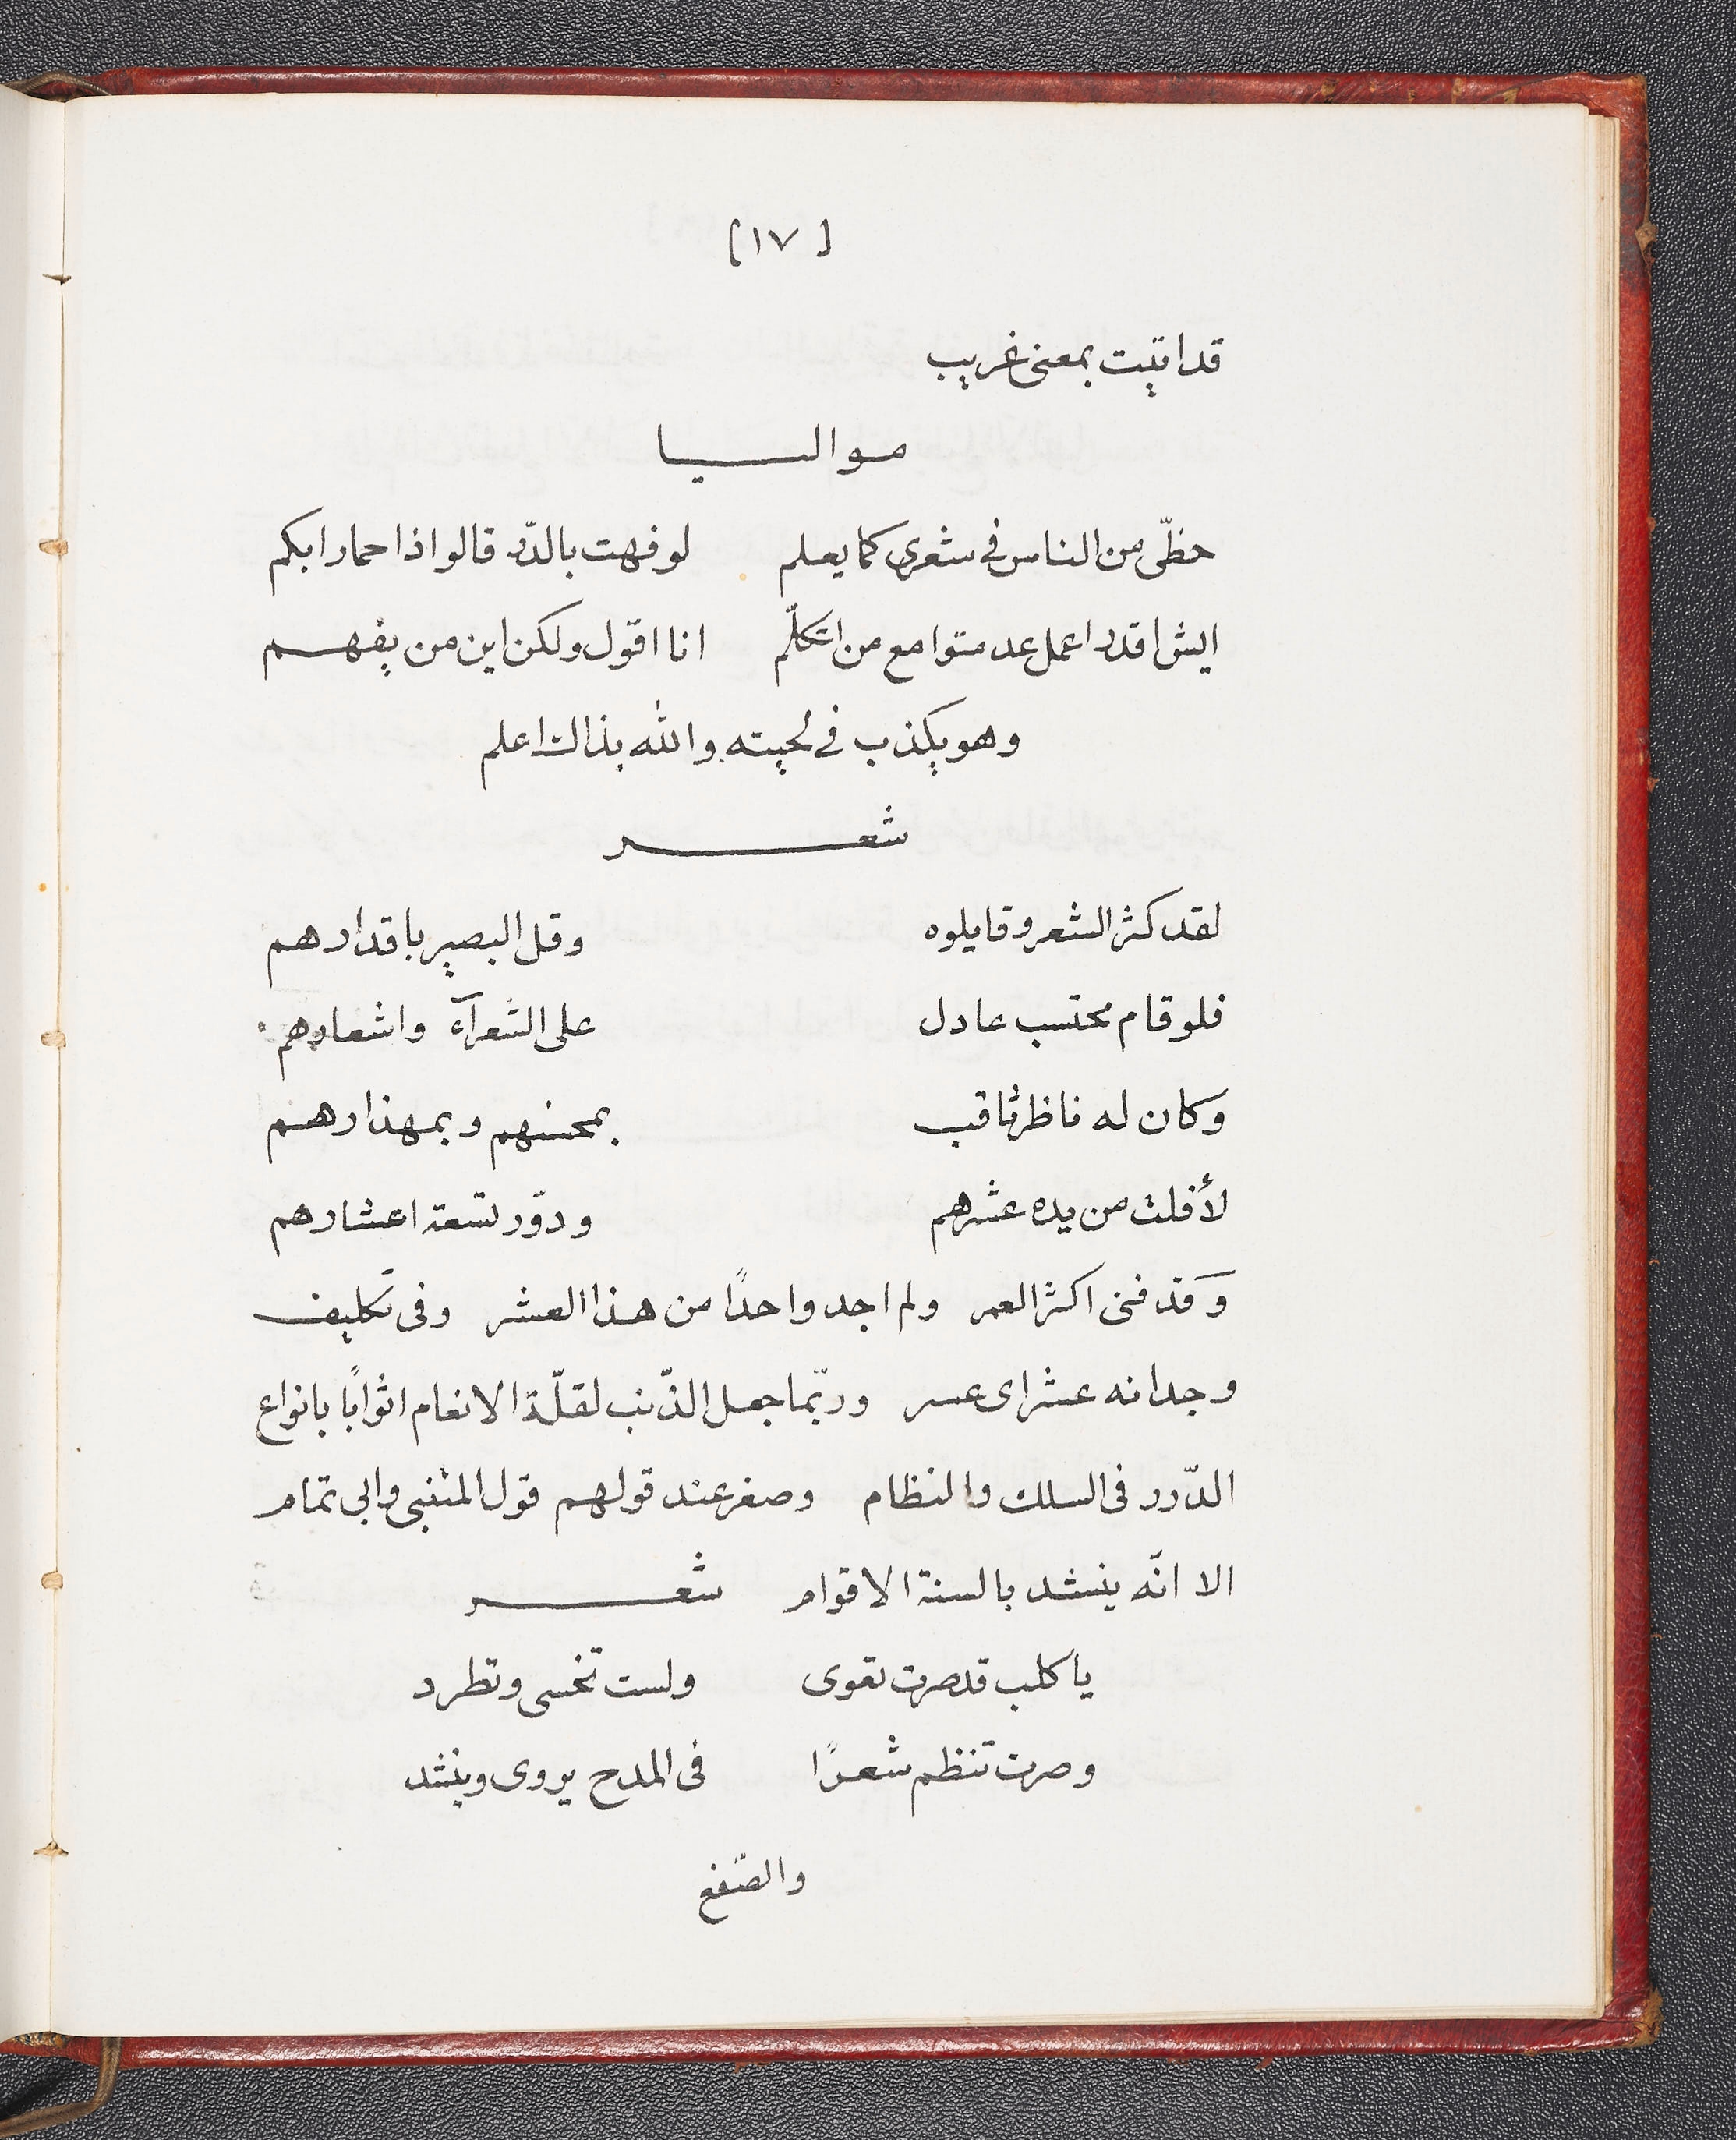 [١٧]
قد اتيت بمعنى غريب
مواليا
حظّى من الناس فى شعرى كما يعلم لو فهت بالدّر قالوا اذا حمار ابكم
ايش اقدر اعمل عدمتوا مع من اتكلّم انا اقول ولكن اين من يفهم
وهو يكذب فى لحيته والله بذالك اعلم
شعر
لقد كثر الشعر وقايلوه وقل البصير باقدارهم
فلو قام محتسب عادل على الشعرآء واشعارهم
وكان له ناظر ثاقب بمحسنهم وبمهذارهم
لأفلت من يده عشرهم ودوّر تسعة اعشارهم
وقد فنى اكثر العمر ولم اجد واحدًا من هذا العشر وفى تكليف
وجدانه عشر اى عسر وربّما جعل الذّنب لقلّة الانعام اثوابًا بانواع
الدّرر فى السلك والنظام وصغر عند قولهم قول المتنبى وابى تمام
الا انّه ينشد بالسنة الاقوام شعر
يا كلب قد صرت تقوى ولست تخسى وتطرد
وصرت تنظم شعرًا فى المدح يروى وينشد
والصّفع